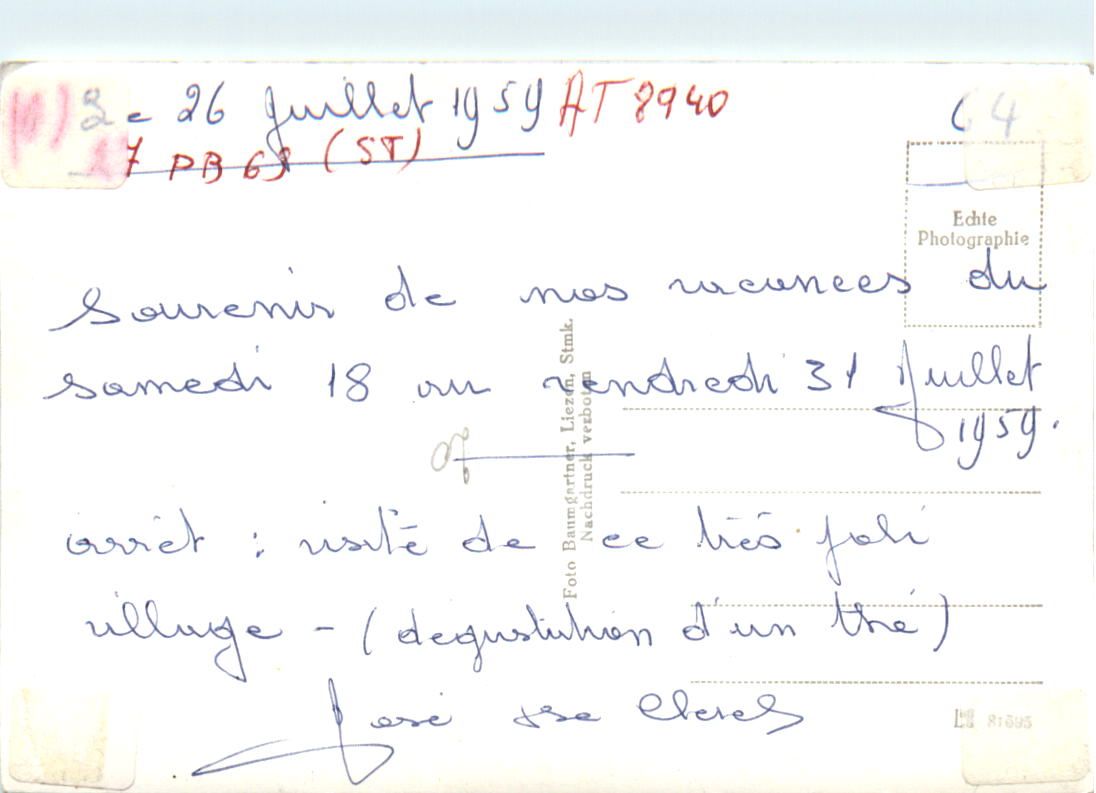 26 Juillet 1959 AT 8940
7 PB 63 (ST)
64
Echte
Photographie
Souvenir de nos vacances du
samedi 18 au vendredi 31 Juillet
1959.
arrêt : visite de ce très joli
village - (degustation d'un thé)
José
Foto Baumgartner, Liezen, Stmk.
Nachdruck verboten
81695